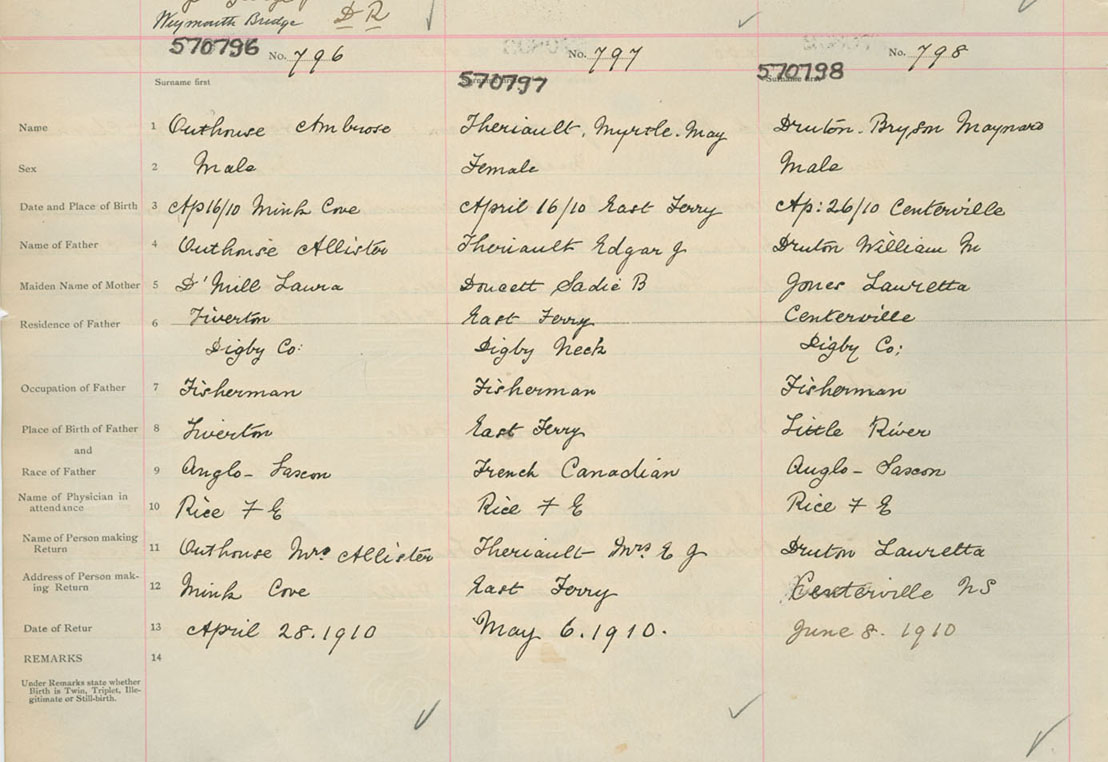 Weymouth Bridge D R
570796 No. 796 No. 797 No. 798
Surname first 570797 570798
Name 1 Outhouse Ambrose Theriault, Myrtle. May Druton. Bryson Maynard
Sex 2 Male Female Male
Date and Place of Birth 3 Ap16/10 Mink Cove April 16/10 East Ferry Ap: 26/10 Centerville
Name of Father 4 Outhouse Allister Theriault Edgar J Druton William M
Maiden Name of Mother 5 D'Mill Laura Doucett Sadie B Jones Lauretta
Residence of Father 6 Tiverton East Ferry Centerville
Digby Co: Digby Neck Digby Co:
Occupation of Father 7 Fisherman Fisherman Fisherman
Place of Birth of Father 8 Tiverton East Ferry Little River
and
Race of Father 9 Anglo-Saxon French Canadian Anglo-Saxon
Name of Physician in
attendance 10 Rice F E Rice F E Rice F E
Name of Person making
Return 11 Outhouse Mrs Allister Theriault Mrs E J Druton Lauretta
Address of Person mak-
ing Return 12 Mink Cove East Ferry Centerville NS
Date of Retur 13 April 28. 1910 May 6. 1910. June 8. 1910
REMARKS 14
Under Remarks state whether
Birth is Twin, Triplet, Ille-
gitimate or Still-birth.